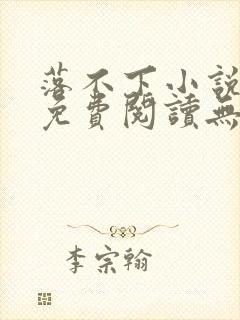 落不下小說
免費閱讀無
李宗翰